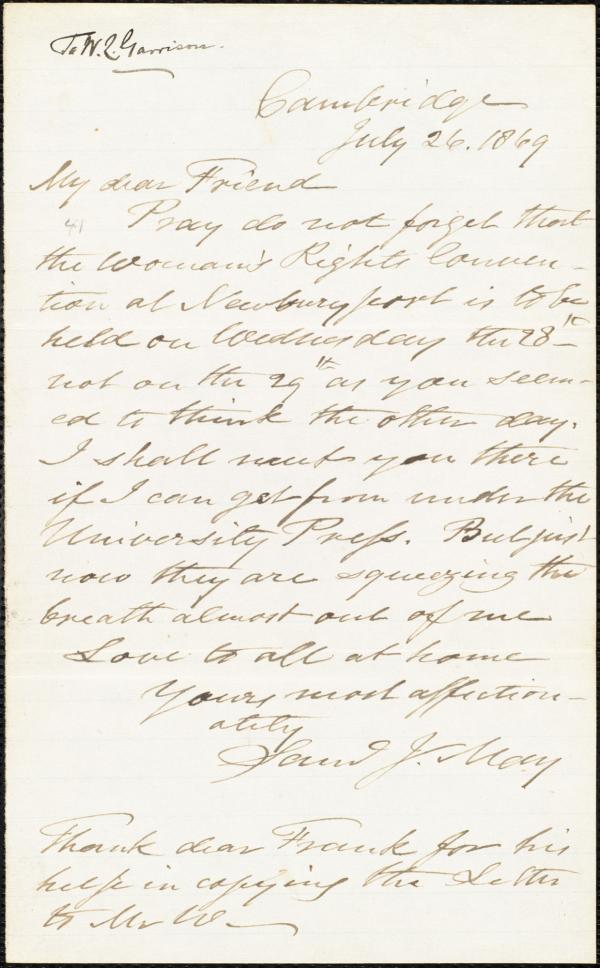 To W. L. Garrison.
Cambridge
July 26. 1869
My dear Friend
41
Pray do not forget that
the Woman's Rights Conven-
tion at Newburyport is to be
held on Wednesday the 28th
not on the 29th as you seem-
ed to think the other day.
I shall meet you there
if I can get from under the
University Press. But just
now they are squeezing the
breath almost out of me
Love to all at home
Yours most affection-
ately
Saml J. May
Thank dear Frank for his
help in copying the Letter
to Mr W—